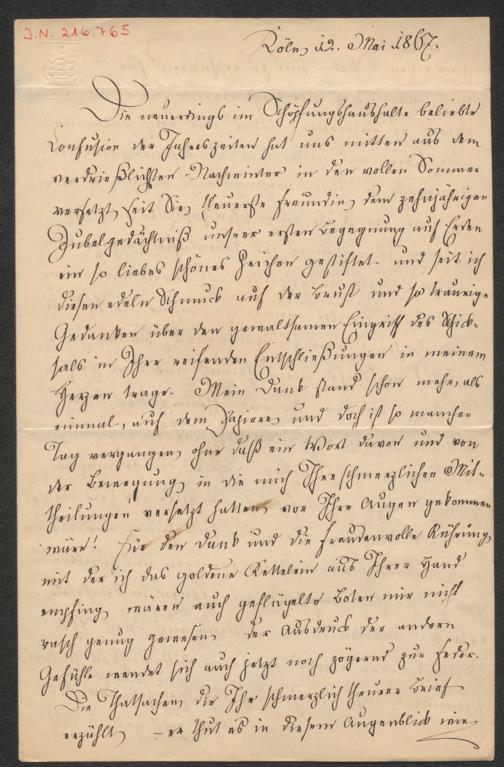 J.N. 216.765
Köln, 12. Mai 1867.
Die neuerdings im Schöpfungshaushalte beliebte
Confusion der Jahreszeiten hat uns mitten aus dem
verdrießlichsten Nachwinter in den vollen Sommer
versetzt, seit Sie, theuerste Freundin, dem zehnjährigen
Jubelgedächtniß unserer ersten Begegnung auf Erden
ein so liebes schönes Zeichen gestiftet. und seit ich
diesen edeln Schmuck auf der Brust und so traurige
Gedanken über den gewaltsamen Eingriff des Schick-
sals in Ihre reifenden Entschließungen in meinem
Herzen trage. Mein Dank stand schon mehr, als
einmal, auf dem Papiere, und doch ist so mancher
Tag vergangen, ohne daß ein Wort davon und von
der Bewegung, in die mich Ihre schmerzlichen Mit-
theilungen versetzt hatten, vor Ihre Augen gekommen
wäre! Für den Dank und die freudenvolle Rührung,
mit der ich das goldene Kettelein aus Ihrer Hand
empfing, wären auch geflügelte Boten mir nicht
rasch genug gewesen, der Ausdruck der andern
Gefühle wendet sich auch jetzt noch zögernd zur Feder.
Die Thatsachen, die Ihr schmerzlich theurer Brief
erzählt, – er thut es in diesem Augenblick wie